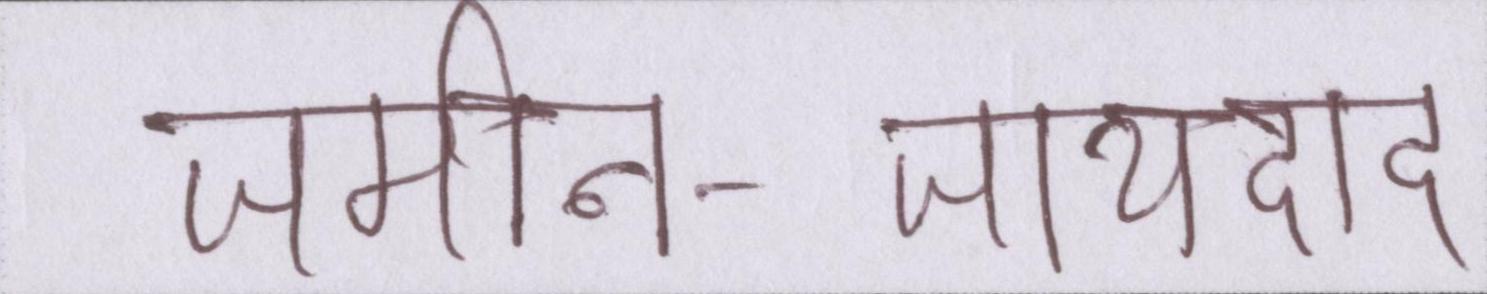 जमीन- जायदाद